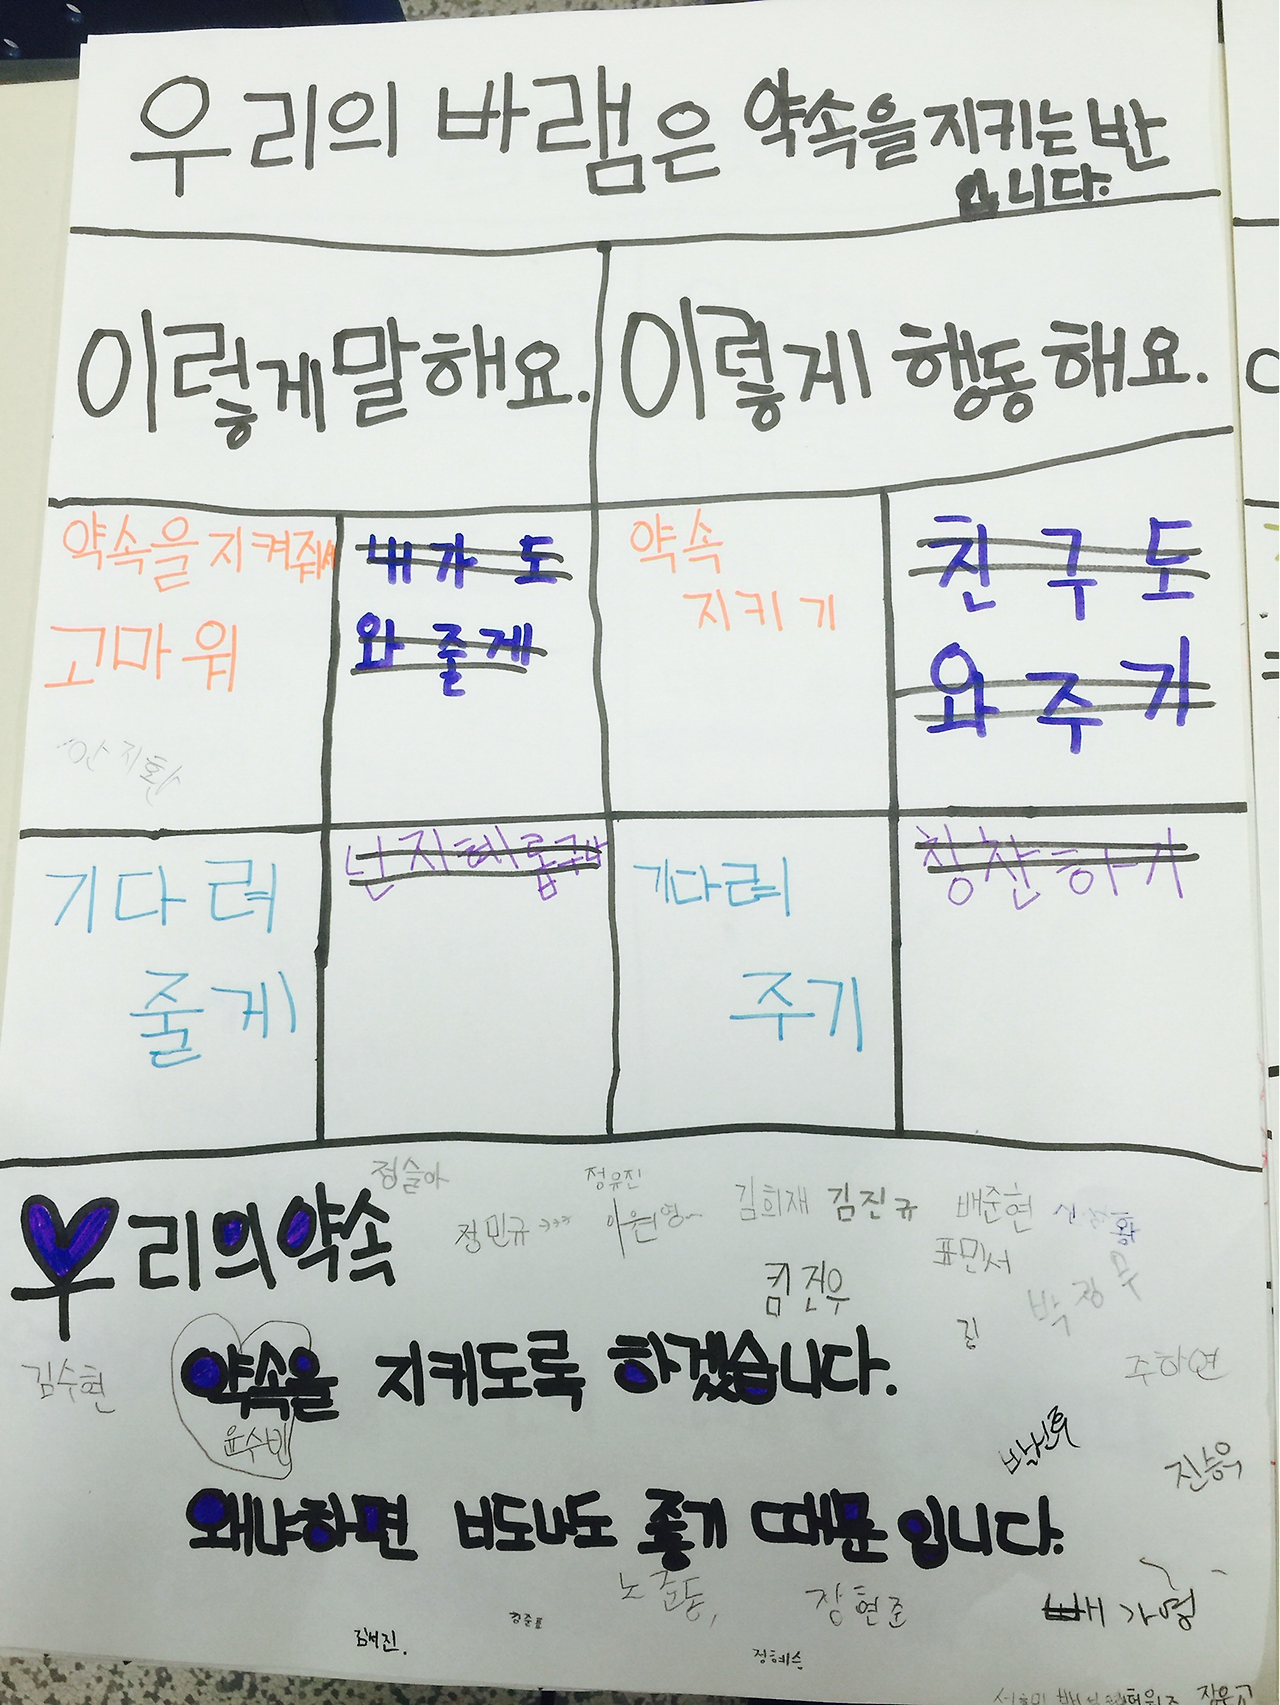 우리의 바램은 약속을지키는반
입니다.
이렇게말해요.
이렇게 행동해요.
약속을 지켜줘서
고마워
안지환
내가 도
와 줄게
약속
지키기
친구도
와주기
기다려
줄게
난 지혜롭구나
기다려
주기
칭찬하기
정슬아
정유진
정민규
이원영
김희재
김진규
배준현
표민서
우리의약속
킴진우
박정우
김
김수현
약속을 지키도록 하겠습니다.
주하연
윤수빈
진승욱
왜냐하면 너도나도 좋기 때문입니다.
노준동,
장현준
배가영
정혜승